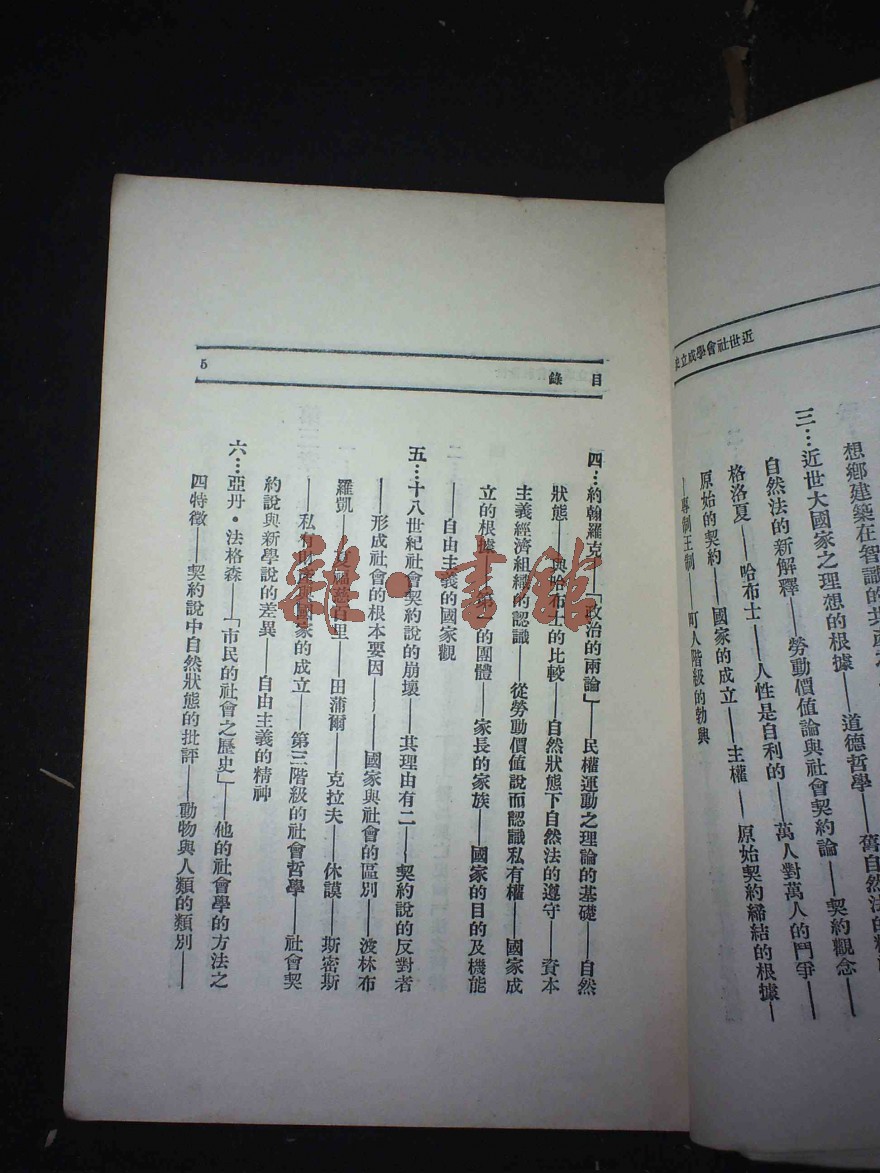 近世社會學成立史
想鄉建築在智識的共產
三…近世大國家之理想的根據——道德哲學——舊自然法的
自然法的新解釋——勞動價值論與社會契約論——契約觀念——
格洛夏——哈布士——人性是自利的——萬人對萬人的鬥爭——
原始的契約——國家的成立——主權——原始契約締結的根據—
——專制王制——町人階級的勃興
目錄
5
四…約翰羅克——「政治的兩論」——民權運動之理論的基礎——自然
狀態——與哈布士的比較——自然狀態下自然法的遵守——資本
主義經濟組織的認識——從勞動價值說而認識私有權——國家成
立的根據——第一的團體——家長的家族——國家的目的及機能
——自由主義的國家觀
五…十八世紀社會契約說的崩壞——其理由有二——契約說的反對者
——形成社會的根本要因——國家與社會的區別——波林布
羅凱——夏福慈百里——田蒲爾——克拉夫——休謨——斯密斯
——私有財產與國家的成立——第三階級的社會哲學——社會契
約說與新學說的差異——自由主義的精神
六…亞丹·法格森——「市民的社會之歷史」——他的社會學的方法之
四特徵——契約說中自然狀態的批評——動物與人類的類別——
雜·書館